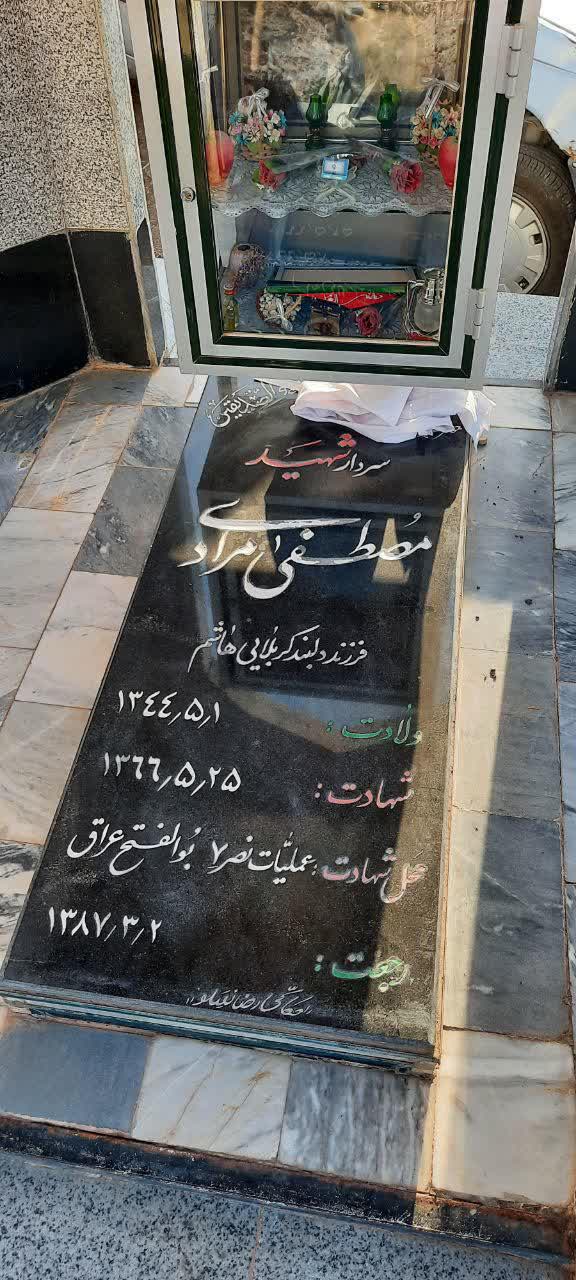 سردار شهید
مصطفی مرادی
فرزند دلبند کربلایی هاشم
ولادت: ۱۳۴۴٫۵٫۱
شهادت: ۱۳۶۶٫۵٫۲۵
محل شهادت: عملیّات نصر۷ بُوالفتح عراق
رجعت: ۱۳۸۷٫۳٫۲